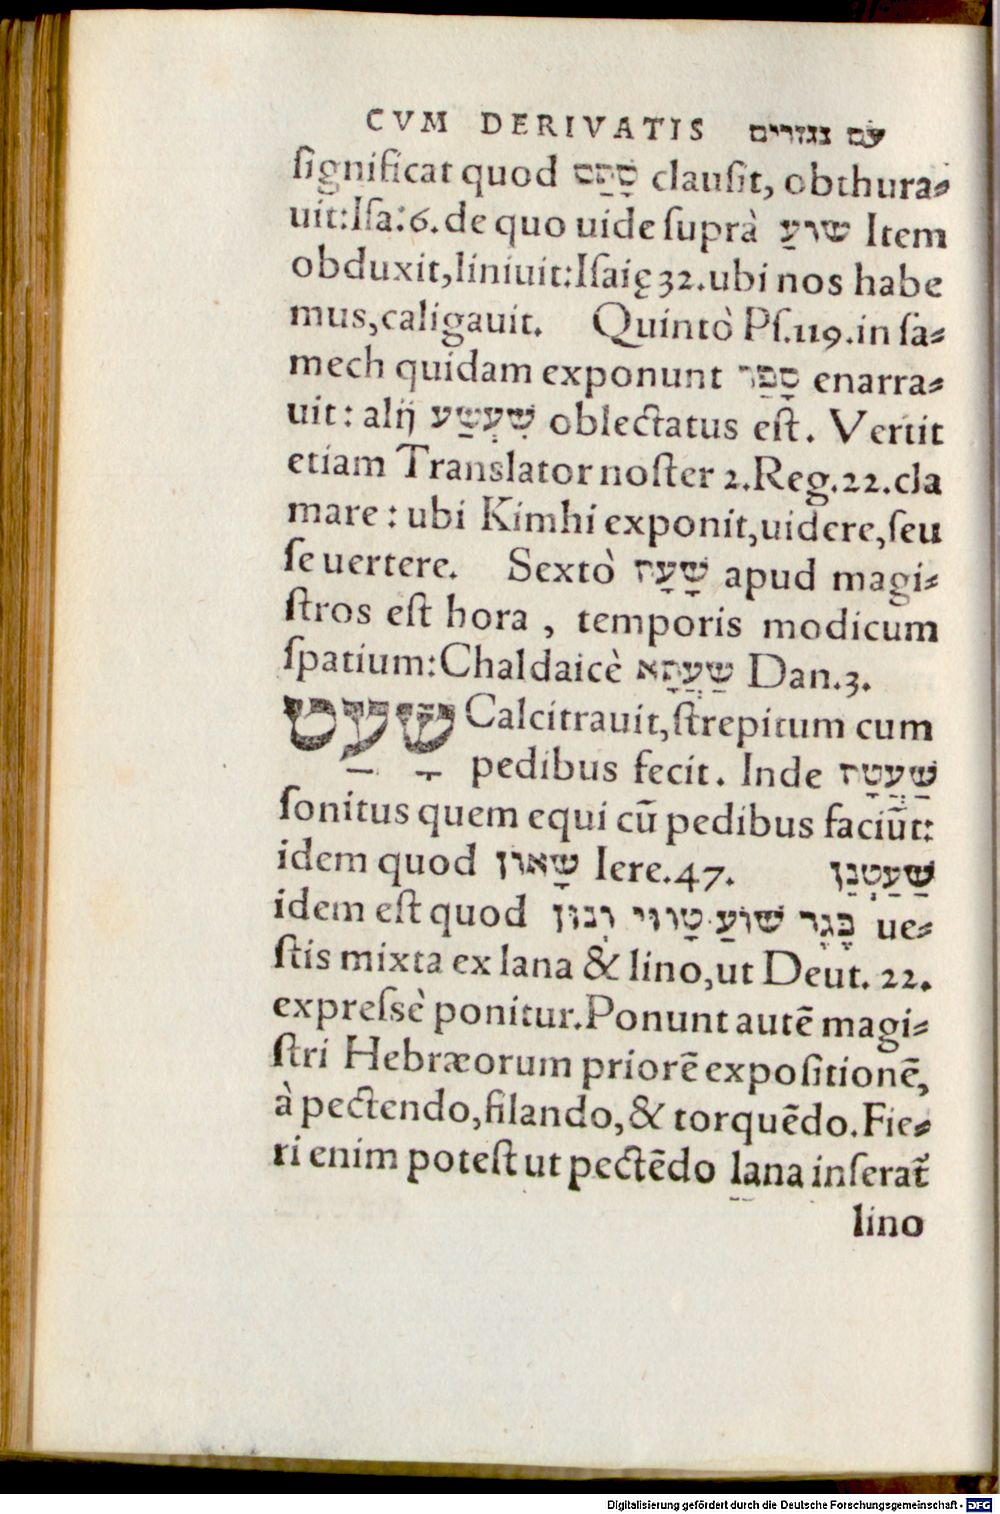 CVM DERIVATIS עם נגזרים
ſignificat quod סָתַם clauſit, obthura⸗
uit:Iſa:6.de quo uide ſuprà שׁוּעַ Item
obduxit,liniuit:Iſaię 32.ubi nos habe
mus,caligauit. Quintò Pſ.119.in ſa⸗
mech quidam exponunt סָפַר enarra⸗
uit: alij שִׁעְשַׁע oblectatus eſt. Vertit
etiam Translator noſter 2.Reg.22.cla
mare: ubi Kimhi exponit,uidere,ſeu
ſe uertere. Sextò שָׁעָה apud magi⸗
ſtros eſt hora , temporis modicum
ſpatium:Chaldaicè שַׁעֲתָא Dan.3.
שָׁעַט Calcitrauit,ſtrepitum cum
pedibus fecit. Inde שַׁעֲטָה
ſonitus quem equi cū pedibus faciūt:
idem quod שָׁאוֹן Iere.47. שַׁעַטְנֵז
idem eſt quod בֶּגֶד שׁוֹעַ טָווּי וְנוּז ue⸗
ſtis mixta ex lana & lino,ut Deut. 22.
expreſsè ponitur.Ponunt autē magi⸗
ſtri Hebræorum priorē expoſitionē,
à pectendo,filando,& torquēdo.Fie⸗
ri enim poteſt ut pectēdo lana inſerat᷑
lino
Digitalisierung gefördert durch die Deutsche Forschungsgemeinschaft - DFG